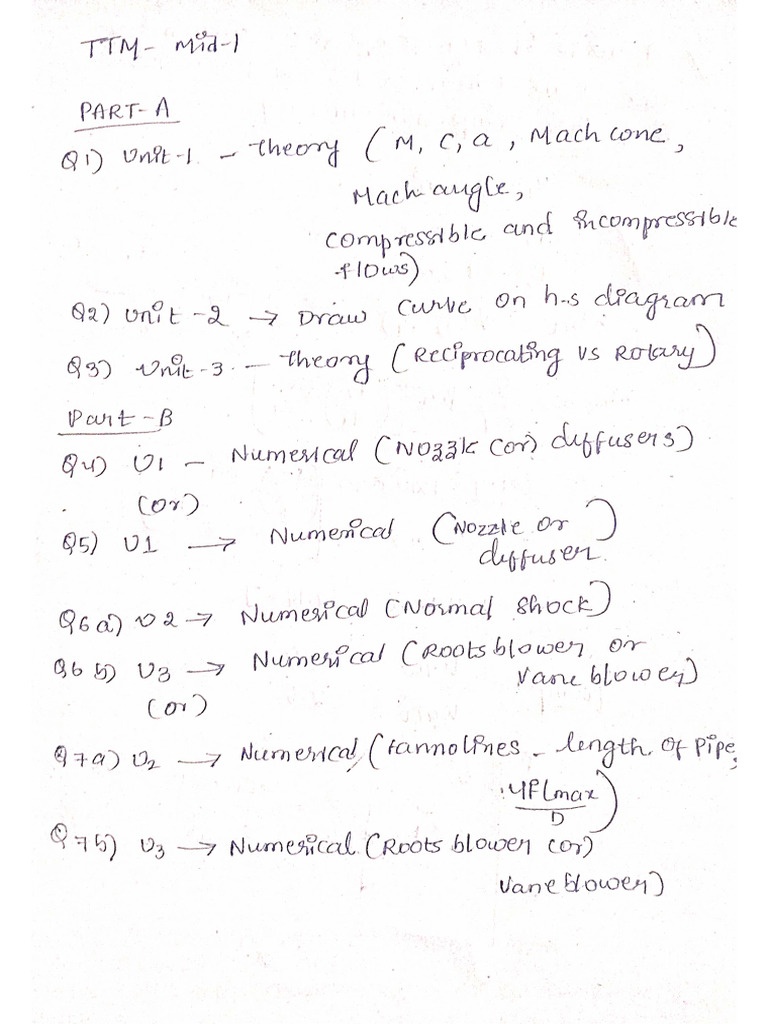 TTM- Mid-1
PART-A
Q1) Unit-1 - theory (M, C, a, Mach cone,
Mach angle,
compressible and incompressible
flows)
Q2) Unit-2 → Draw curve on h-s diagram
Q3) Unit-3 - theory (Reciprocating vs Rotary)
Part-B
Q4) U1 - Numerical (Nozzle (or) diffusers)
(or)
Q5) U1 → Numerical (Nozzle or
diffuser)
Q6 a) U2 → Numerical (Normal shock)
Q6 b) U3 → Numerical (Roots blower or
Vane blower)
(or)
Q7 a) U2 → Numerical (fanno lines - length of pipe,
4fLmax
D)
Q7 b) U3 → Numerical (Roots blower (or)
Vane blower)